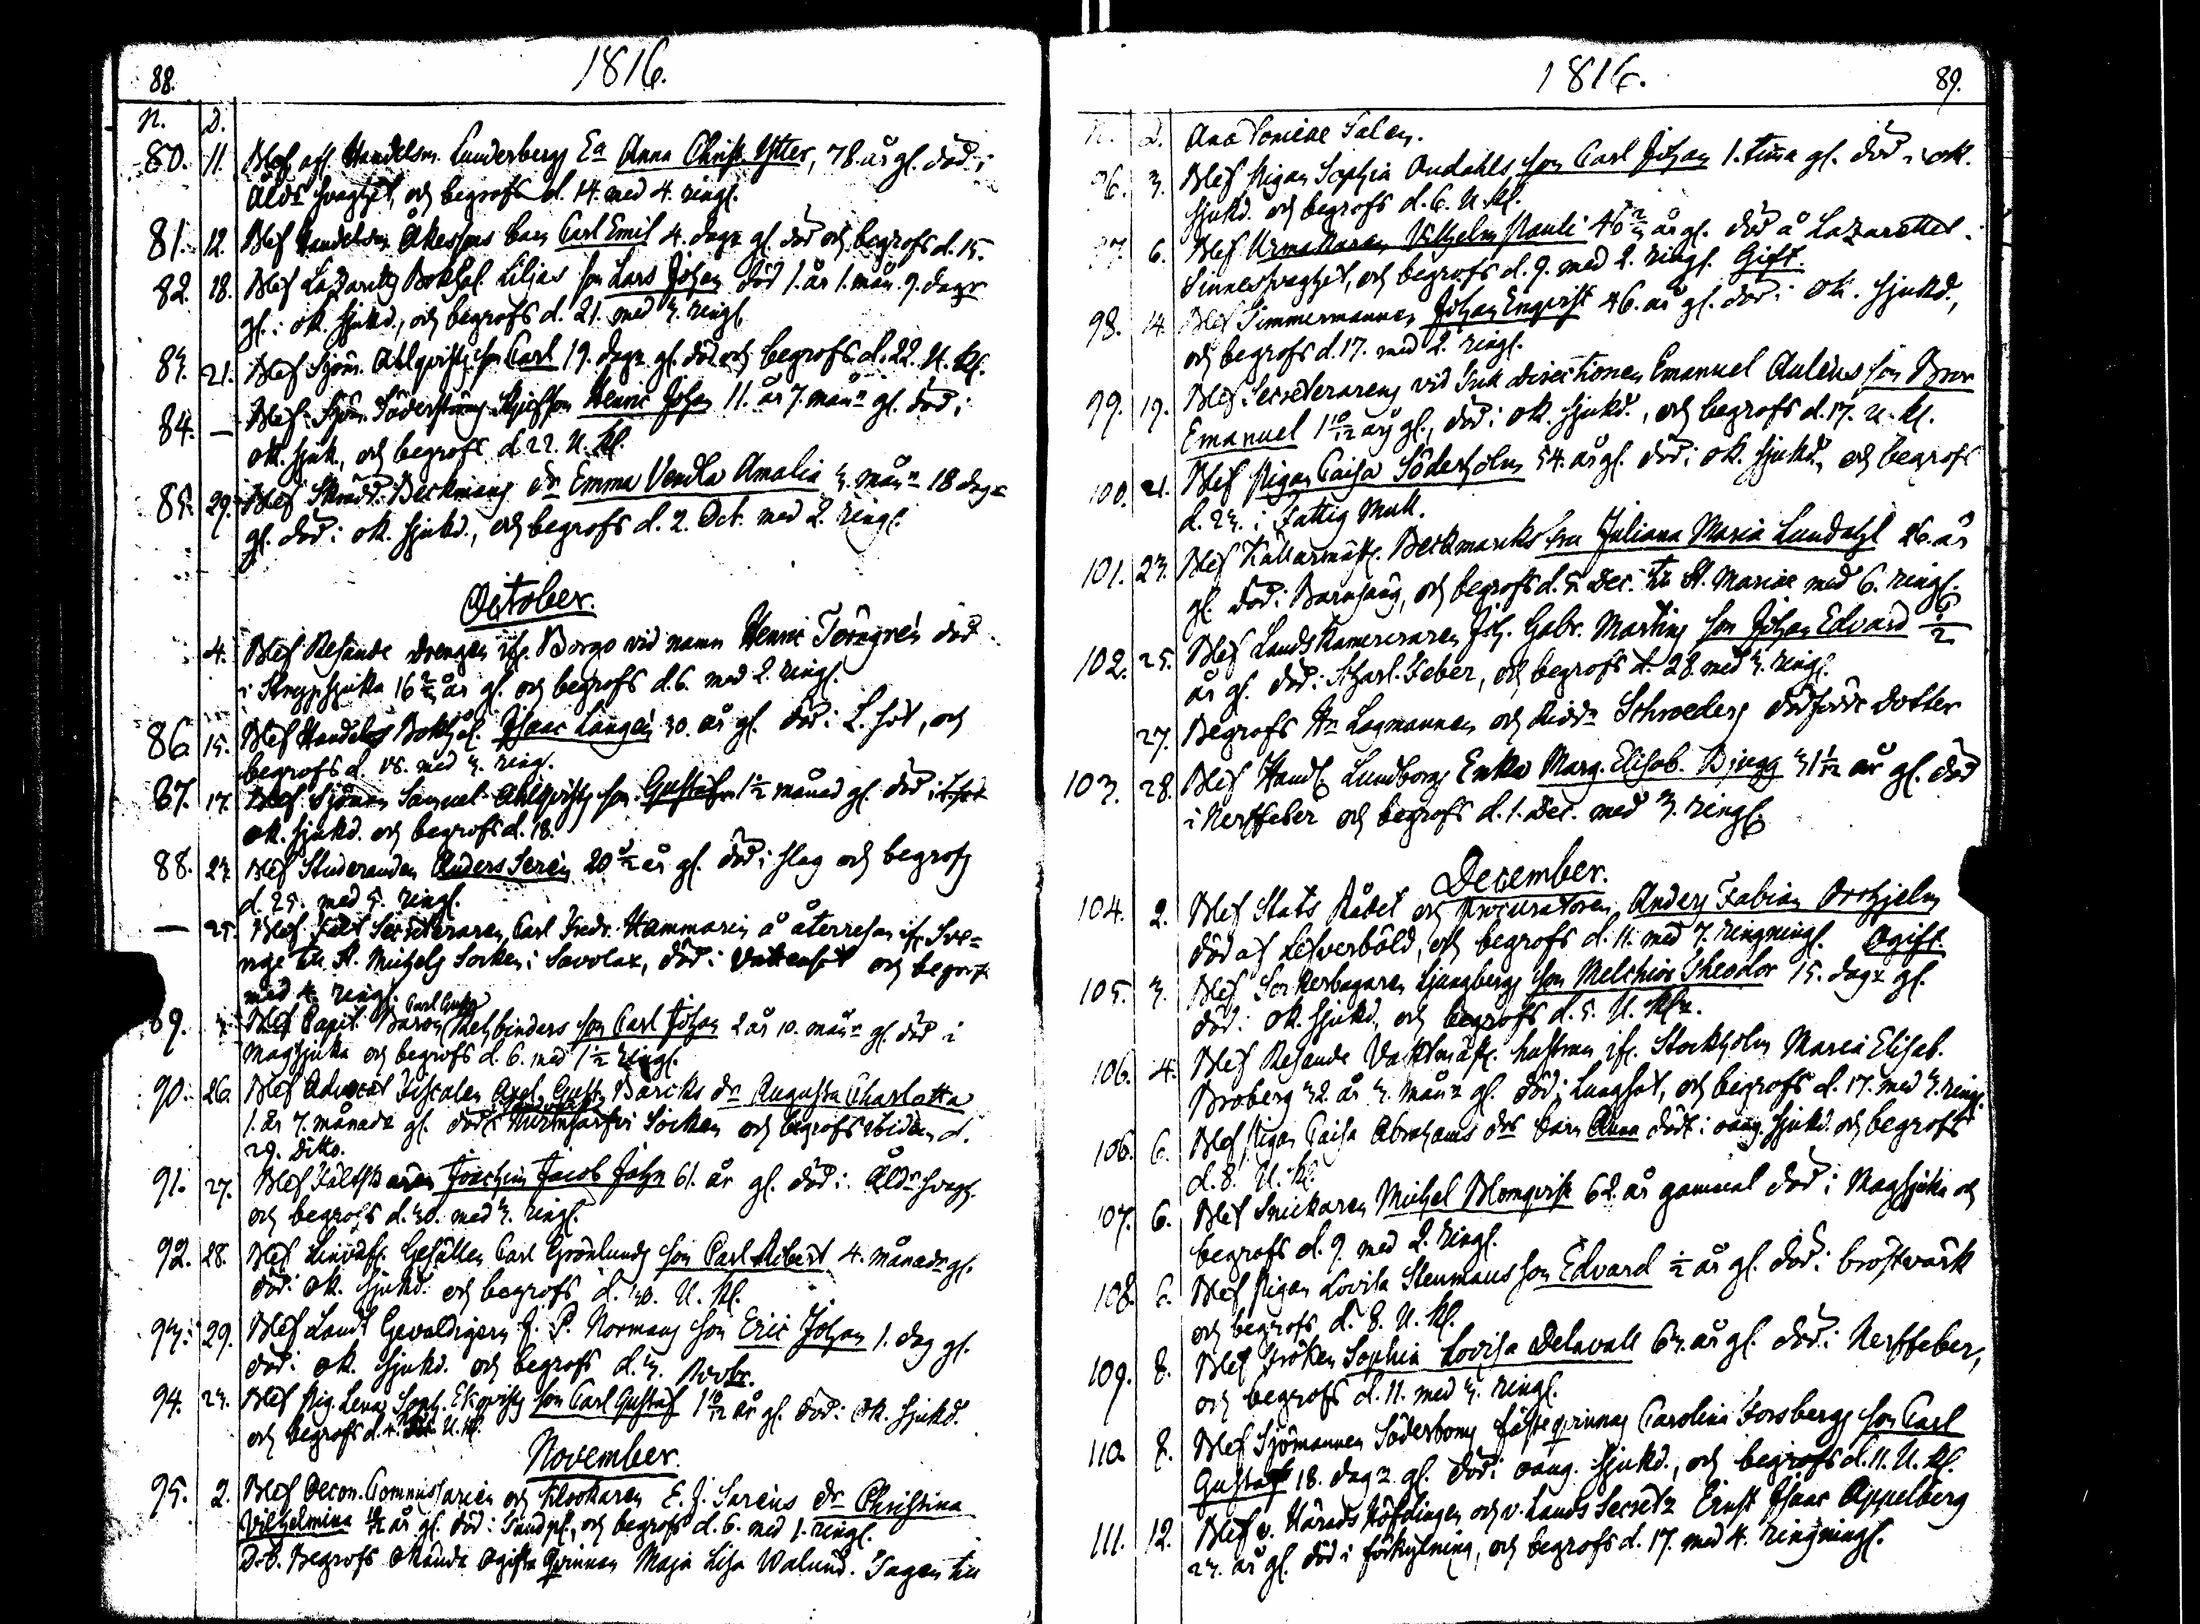 88. 1816.
N. D.
80. 11. Blef afl. Handelsm. Lunderbergs Ea Anna Christ. Ytter, 78. år gl. död i
Ålds svaghet, och begrofs d. 14. med 4. ringl.
81. 12. Blef Handelsm. Åkessons barn Carl Emil 4. dagr gl. död och begrofs d. 15.
82. 18. Blef Lazaretts Bokhål. Liljas son Lars Johan död 1. år 1. mån. 9. dagr
gl. i ok. sjukd., och begrofs d. 21. med 3. ringl.
83. 21. Blef Sjöm. Ahlqvists son Carl 19. dagr gl. död och begrofs d. 22. U. Kl.
84. — Blef Sjöm. Söderströms Styfson Henric Johan 11. år 7. månr gl. död i
ok. sjuk., och begrofs d. 22. U. Kl.
85. 29. Blef Skrädd. Beckmans dr Emma Vendla Amalia 3. månr 18 dagr
gl. död i ok. sjukd., och begrofs d. 2. Oct. med 2. ringl.
October.
4. Blef Resande drengen ifr. Borgo vid namn Henric Törngrén död
i Strypsjuka 16 år gl. och begrofs d. 6. med 2. ringl.
86. 15. Blef Handels Bokhål. Isaac Langén 30. år gl. död i L. sot, och
begrofs d. 18. med 3. ringl.
87. 17. Blef Sjöman Samuel Ahlqvists son Gustaf 1½ månad gl. död i
ok. sjukd. och begrofs d. 18.
88. 23. Blef Studeranden Anders Serén 20½ år gl. död i slag och begrofs
d. 25. med 5. ringl.
— 25. Blef Fält Secreteraren Carl Fredr. Hammarin å återresan ifr. Sve=
rige till St. Michels Socken i Savolax, död i Vattusot och begrofs
med 4. ringl.
89. Blef Capit. Baron Carl Gust. Rehbinders son Carl Johan 2 år 10. månr gl. död i
Magsjuka och begrofs d. 6. med 1½ ringl.
90. 26. Blef Advocat Fiscalen Axel Gust. Baricks dr Augusta Charlotta
1. år 7. månadr gl. död i Socken och begrofs ibidem d.
29. Ditto.
91. 27. Blef Fältskären Joachim Jacob Jahn 61. år gl. död i Åldr svagh.
och begrofs d. 30. med 3. ringl.
92. 28. Blef Gesällen Carl Grönlunds son Carl Robert 4. månadr gl.
död i ok. sjukd. och begrofs d. 30. U. Kl.
93. 29. Blef Lands Gevaldigern J. P. Normans son Eric Johan 1. dag gl.
död i ok. sjukd. och begrofs d. 3. Novbr.
94. 23. Blef Pig. Lena Soph. Ekqvists son Carl Gustaf 1 10/12 år gl. död i ok. sjukd.
och begrofs d. 4. U. Kl.
November.
95. 2. Blef Oecon. Commissarien och Klockaren E. J. Sarens dr Christina
Vilhelmina år gl. död i och begrofs d. 6. med 1. ringl.
D. 6. Begrofs okända ogifta Qvinnan Maja Lisa Walund. Tagen till
1816. 89.
N. D. Anatomicae Salen.
96. 3. Blef Pigan Sophia Audahls son Carl Johan 1. tima gl. död i ok.
sjukd. och begrofs d. 6. U. Kl.
97. 6. Blef Urmakaren Vilhelm Pauli 46 år gl. död å Lazarettet i
Sinnessvaghet, och begrofs d. 9. med 2. ringl. Gift.
98. 14. Blef Timmermannen Johan Enqvist 46. år gl. död i ok. sjukd.,
och begrofs d. 17. med 2. ringl.
99. 19. Blef Secreteraren vid Directionen Emanuel Auléns son Bror
Emanuel 1 10/12 års gl., död i ok. sjukd., och begrofs d. 17. U. Kl.
100. 21. Blef Pigan Caisa Söderholm 54. år gl. död i ok. sjukd., och begrofs
d. 23. i Fattig Mull.
101. 23. Blef Källarmäst. Beckmarcks fru Juliana Maria Lundahl 26. år
gl. död i Barnsäng, och begrofs d. 5. Dec. till St. Mariae med 6. ringl.
102. 25. Blef LandsKamereraren Joh. Gabr. Martins son Johan Edvard
år gl. död i Skarl. Feber, och begrofs d. 28. med 3. ringl.
27. Begrofs Hr Lagmannen och Riddr Schroeders dödfödde dotter
103. 28. Blef Handl. Lundborgs Enka Marg. Elisab. Bjugg 31½ år gl. död
i Nerffeber och begrofs d. 1. Dec. med 3. ringl.
December.
104. 2. Blef Stats Rådet och Procuratoren Anders Fabian Orrhjelm
död af Lefverböld, och begrofs d. 11. med 7. ringningl. Ogift.
105. 3. Blef Sockerbagaren Ljungbergs son Melchior Theodor 15. dagr gl.
död i ok. sjukd., och begrofs d. 5. U. Klr.
106. 4. Blef Resande Vacktmäst. hustrun ifr. Stockholm Maria Elisab.
Broberg 32. år 3. månr gl. död i Lungsot, och begrofs d. 17. med 3. ringl.
106. 6. Blef Pigan Caisa Abrahams drs barn Anna dödt i oang. sjukd. och begrofs
d. 8. U. Kl.
107. 6. Blef Snickaren Michel Blomqvist 62. år gammal död i Magsjuka och
begrofs d. 9. med 2. ringl.
108. 6. Blef Pigan Lovisa Stenmans son Edvard ½ år gl. död i bröstvärk
och begrofs d. 8. U. Kl.
109. 8. Blef Fröken Sophia Lovisa Delavall 63. år gl. död i Nerffeber,
och begrofs d. 11. med 3. ringl.
110. 8. Blef Sjömannen Söderboms fästeqvinnas Carolina Forsbergs son Carl
Gustaf 18. dagr gl. död i oang. sjukd., och begrofs d. 11. U. Kl.
111. 12. Blef v. HäradsHöfdingen och v. Lands Secretr Ernst Isaac Appelberg
23. år gl. död i förkylning, och begrofs d. 17. med 4. ringningl.